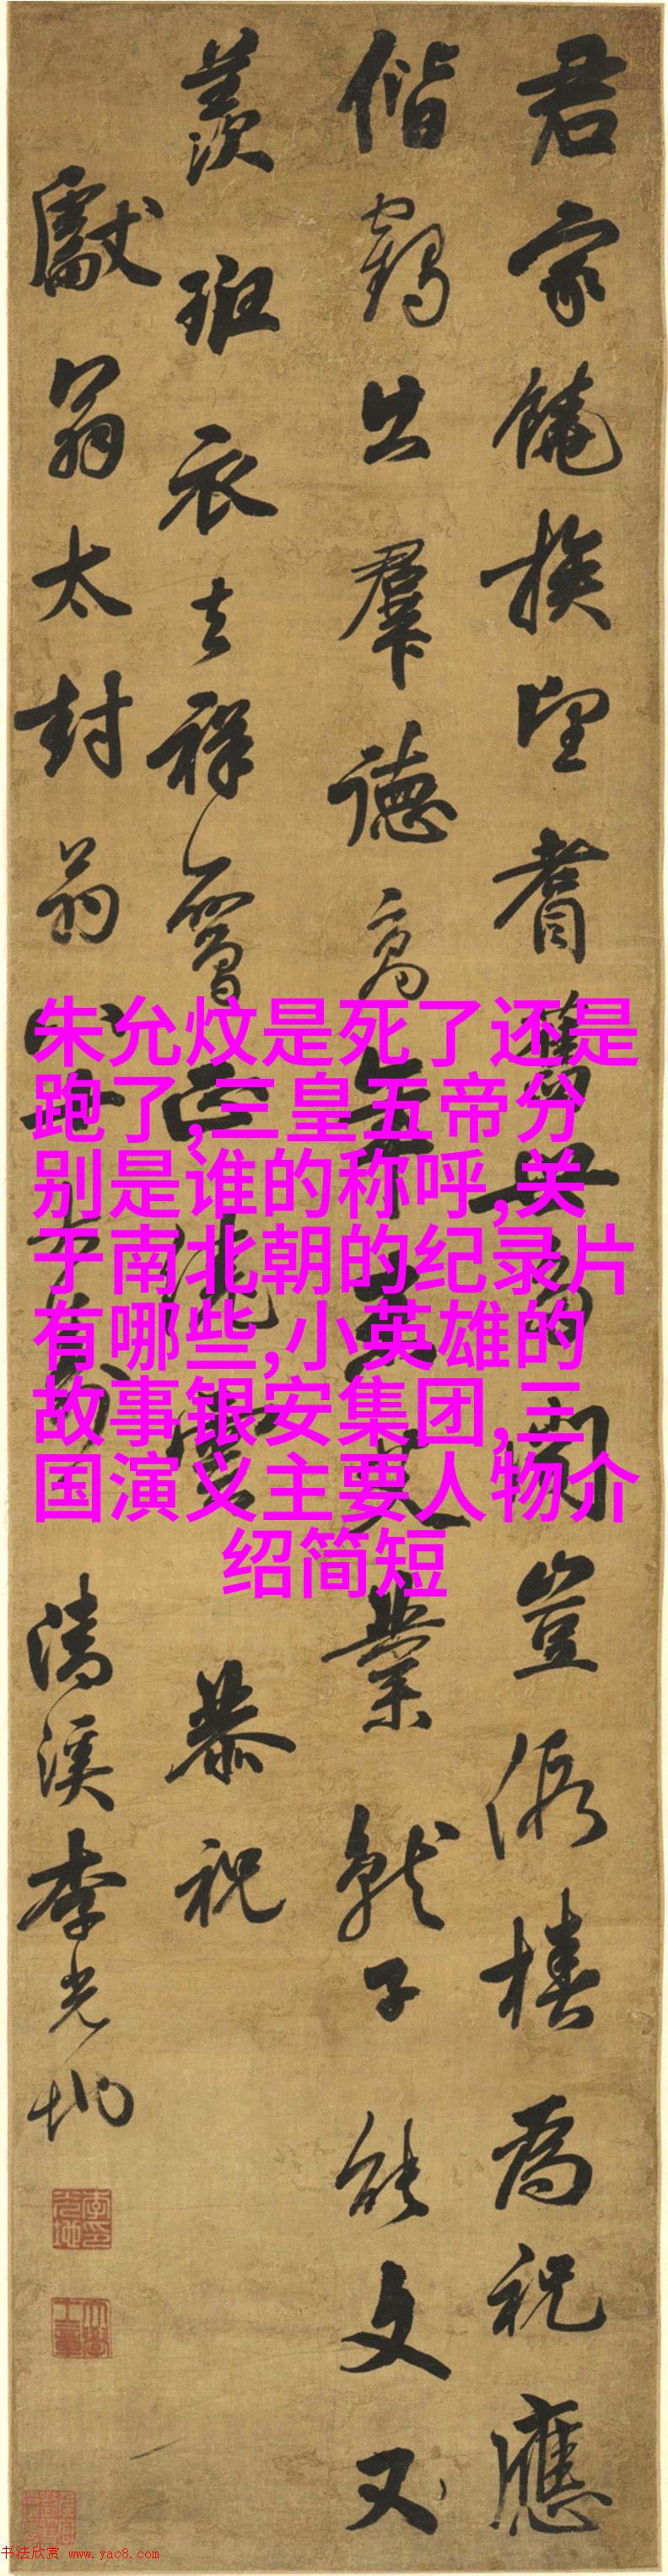 君家饒族望耆舊世聞豈假椿為祝應
偕鶴出羣德高年業就子能文又
羨班衣去祥正雲恭祝
獻翁太封翁
清溪李光地
朱允炆是死了还是
跑了,三皇五帝分
别是谁的称呼,关
于南北朝的纪录片
有哪些,小英雄的
故事银安集团,三
国演义主要人物介
绍简短
书法欣赏 www.yac8.com